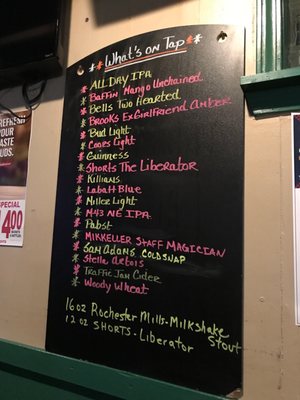 What's on Tap
ALL DAY IPA
BAFFIN Mango Unchained
Bells Two Hearted
Brooks Ex Girlfriend Amber
Bud Light
Coors Light
Guinness
Shorts The Liberator
Killians
Labatt Blue
Miller Light
M43 NE IPA
Pabst
MIKKELLER STAFF MAGICIAN
SAM ADAMS COLD SNAP
Stella Artois
TRAFFIC JAM CIDER
Woody Wheat
16 oz Rochester Mills - Milkshake Stout
12 oz SHORTS - Liberator
SPECIAL
4.00